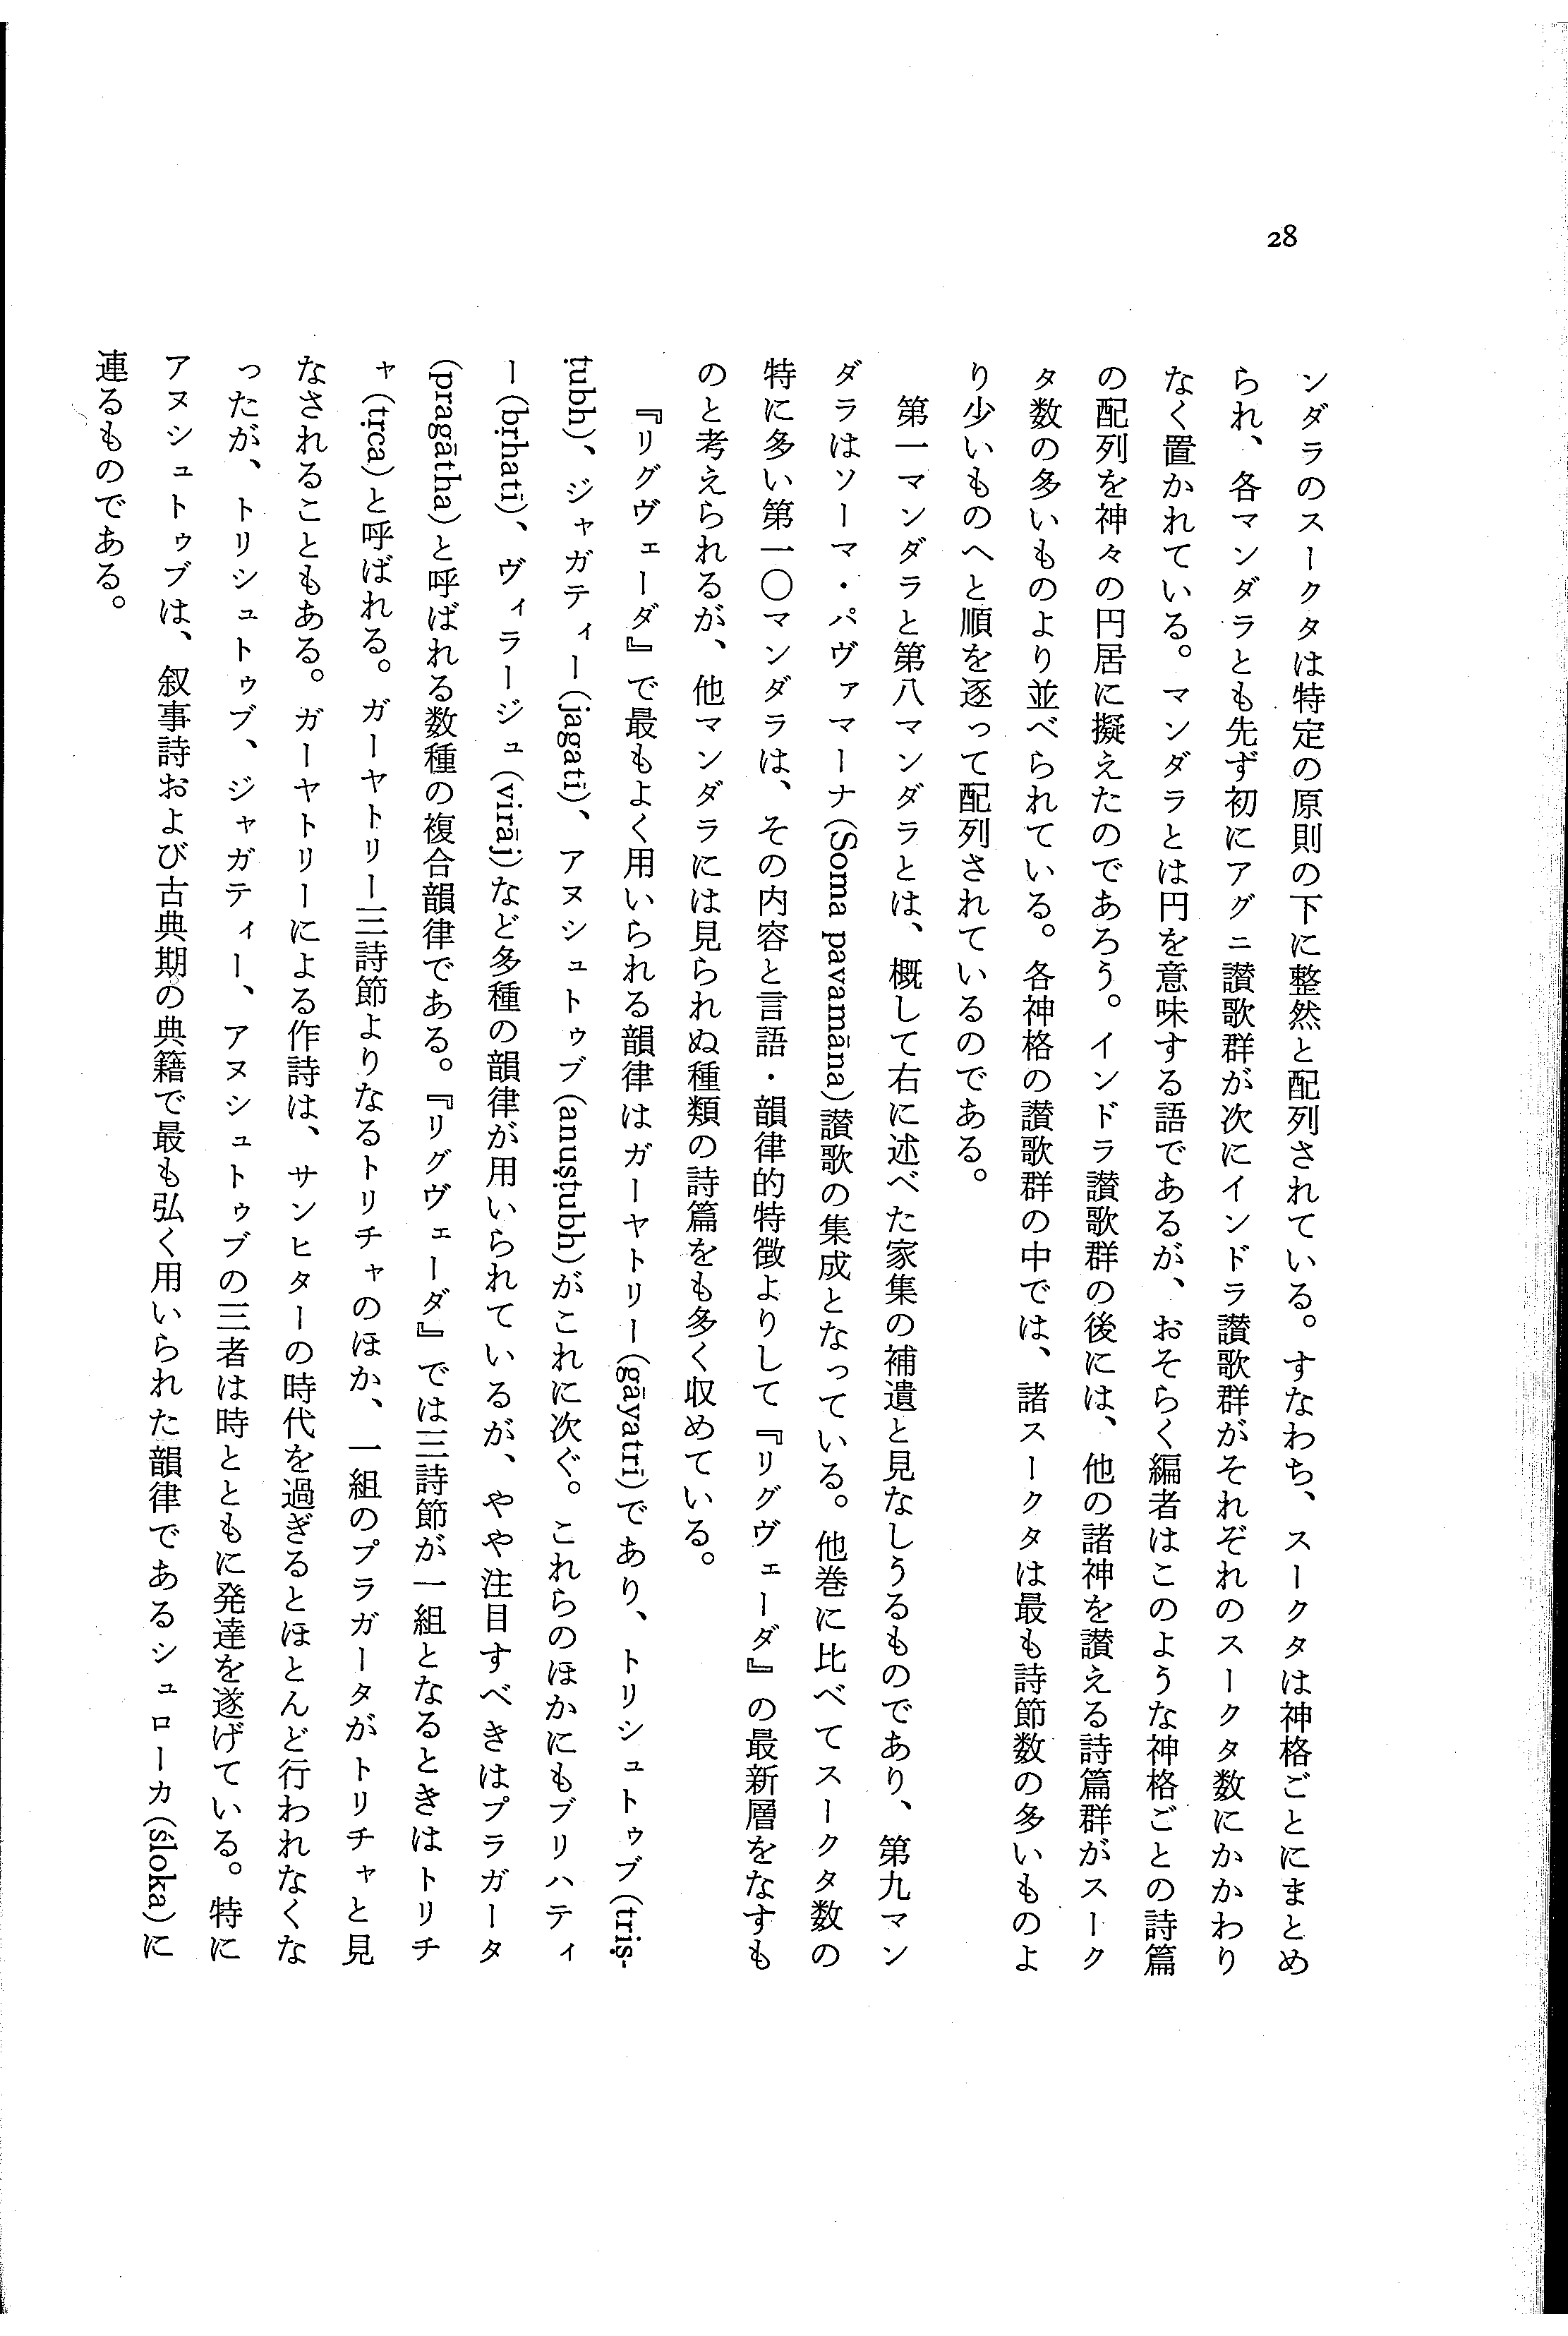 28
ンダラのスークタは特定の原則の下に整然と配列されている。すなわち、スークタは神格ごとにまとめ
られ、各マンダラとも先ず初にアグニ讃歌群が次にインドラ讃歌群がそれぞれのスークタ数にかかわり
なく置かれている。マンダラとは円を意味する語であるが、おそらく編者はこのような神格ごとの詩篇
の配列を神々の円居に擬えたのであろう。インドラ讃歌群の後には、他の諸神を讃える詩篇群がスーク
タ数の多いものより並べられている。各神格の讃歌群の中では、諸スークタは最も詩節数の多いものよ
り少いものへと順を逐って配列されているのである。
第一マンダラと第八マンダラとは、概して右に述べた家集の補遺と見なしうるものであり、第九マン
ダラはソーマ・パヴァマーナ(Soma pavamāna)讃歌の集成となっている。他巻に比べてスークタ数の
特に多い第一〇マンダラは、その内容と言語・韻律的特徴よりして『リグヴェーダ』の最新層をなすも
のと考えられるが、他マンダラには見られぬ種類の詩篇をも多く収めている。
『リグヴェーダ』で最もよく用いられる韻律はガーヤトリー(gāyatrī)であり、トリシュトゥブ(triṣ-
ṭubh)、ジャガティー(jagatī)、アヌシュトゥブ(anuṣṭubh)がこれに次ぐ。これらのほかにもブリハティ
ー(bṛhatī)、ヴィラージュ(virāj)など多種の韻律が用いられているが、やや注目すべきはプラガータ
(pragātha)と呼ばれる数種の複合韻律である。『リグヴェーダ』では三詩節が一組となるときはトリチ
ャ(tṛca)と呼ばれる。ガーヤトリー三詩節よりなるトリチャのほか、一組のプラガータがトリチャと見
なされることもある。ガーヤトリーによる作詩は、サンヒターの時代を過ぎるとほとんど行われなくな
ったが、トリシュトゥブ、ジャガティー、アヌシュトゥブの三者は時とともに発達を遂げている。特に
アヌシュトゥブは、叙事詩および古典期の典籍で最も弘く用いられた韻律であるシュローカ(śloka)に
連るものである。